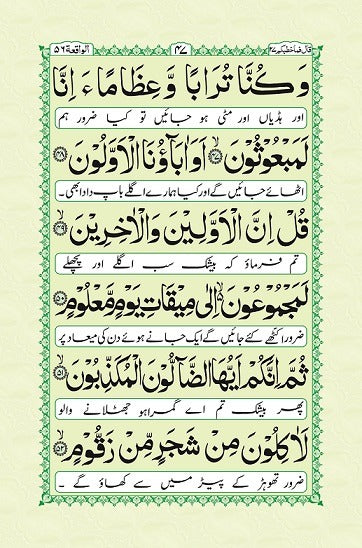 قال فما خطبکم ۲۷ ۴۷ الواقعة ۵۶
وَكُنَّا تُرَابًا وَّعِظَامًاءَ اِنَّا
اور ہڈیاں اور مٹی ہو جائیں تو کیا ضرور ہم
لَمَبْعُوْثُوْنَ ۴۷ اَوَاٰبَآؤُنَا الْاَوَّلُوْنَ ۴۸
اٹھائے جائیں گے اور کیا ہمارے اگلے باپ دادا بھی۔
قُلْ اِنَّ الْاَوَّلِيْنَ وَالْاٰخِرِيْنَ ۴۹
تم فرماؤ کہ بیشک سب اگلے اور پچھلے
لَمَجْمُوْعُوْنَ اِلٰى مِيْقَاتِ يَوْمٍ مَّعْلُوْمٍ ۵۰
ضرور اکٹھے کئے جائیں گے ایک جانے ہوئے دن کی میعاد پر
ثُمَّ اِنَّكُمْ اَيُّهَا الضَّآلُّوْنَ الْمُكَذِّبُوْنَ ۵۱
پھر بیشک تم اے گمراہو جھٹلانے والو
لَاٰكِلُوْنَ مِنْ شَجَرٍ مِّنْ زَقُّوْمٍ ۵۲
ضرور تھوہڑ کے پیڑ میں سے کھاؤ گے ۔